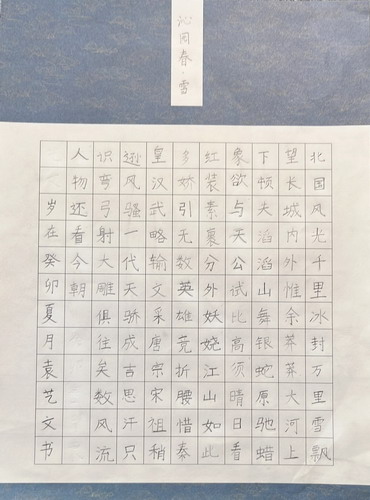 沁园春·雪
北国风光千里冰封万里雪飘
望长城内外惟余莽莽大河上
下顿失滔滔山舞银蛇原驰蜡
象欲与天公试比高须晴日看
红装素裹分外妖娆江山如此
多娇引无数英雄竞折腰惜秦
皇汉武略输文采唐宗宋祖稍
逊风骚一代天骄成吉思汗只
识弯弓射大雕俱往矣数风流
人物还看今朝
岁在癸卯夏月袁艺文书